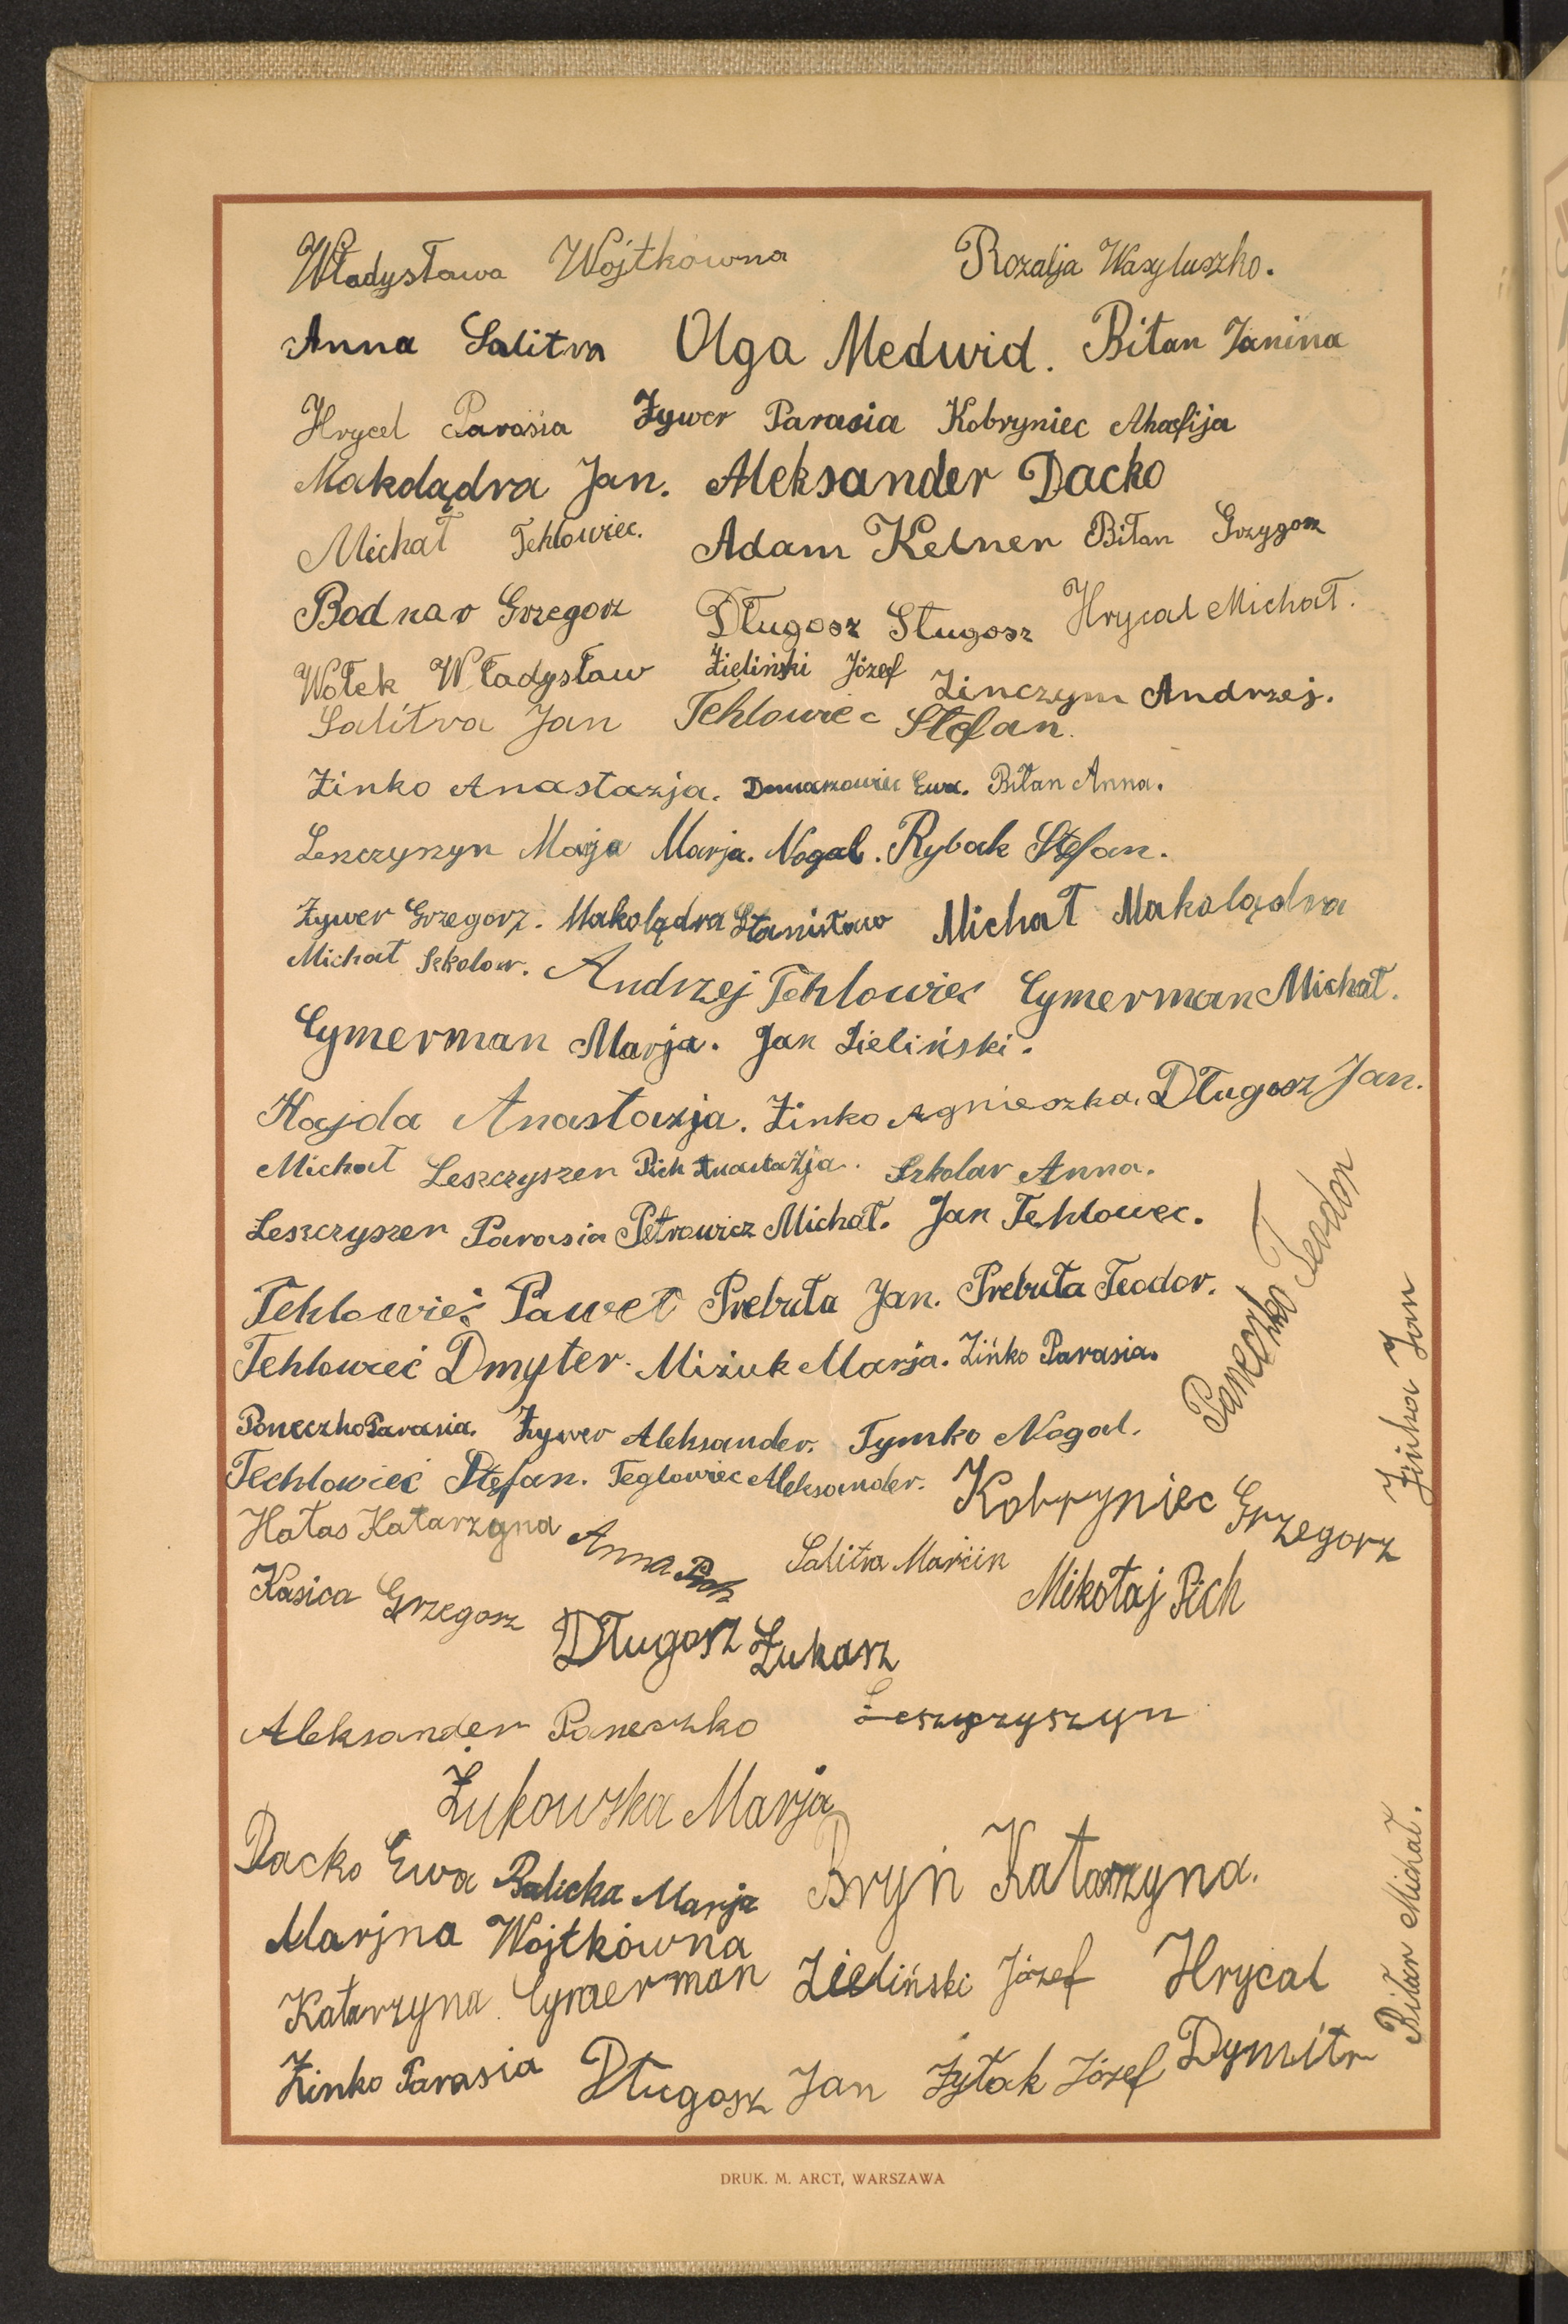 Władysława Wójtkówna Rozalja Wasyluszko.
Anna Salitra Olga Medwid. Biłan Janina
Hrycel Parasia Żywer Parasia Kobryniec Ahafija
Makolądra Jan. Aleksander Dacko
Michał Tehlowiec. Adam Kelner Biłan Grzygosz
Bodnar Grzegorz Długosz Długosz Hrycal Michał.
Wołek Władysław Zieliński Józef Zinczym Andrzej.
Salitra Jan Tehlowiec Stefan.
Zinko Anastazja. Domaszowiec Ewa. Biłan Anna.
Leszczyszyn Marja Marja. Nogal. Rybak Stefan.
Żywer Grzegorz. Makolądra Stanisław Michał Makolądra
Michał Szkolar. Andrzej Tehlowiec Cymerman Michał.
Cymerman Marja. Jan Zieliński.
Hajda Anastazja. Zinko Agnieszka. Długosz Jan.
Michał Leszczyszen Pich Anastazja. Szkolar Anna.
Leszczyszen Parasia Petrowicz Michał. Jan Tehlowec.
Tehlowieć Paweł Prebuła Jan. Prebuła Teodor.
Tehlowieć Dmyter. Miziuk Marja. Zińko Parasia.
Poneczko Parasia. Żywer Aleksander. Tymko Nogal.
Paneczko Teodor
Zińko Jan
Techlowieć Stefan. Teglowiec Aleksander. Kobryniec Grzegorz
Hałas Katarzyna Anna Pich Salitra Marcin
Kasica Grzegosz Mikołaj Pich
Długosz Łukasz
Aleksander Paneczko Leszczyszyn
Żukowska Marja
Dacko Ewa Balicka Marja Bryń Katarzyna.
Marjna Wójtkówna
Katarzyna Cymerman Zieliński Józef Hrycal
Zinko Parasia Długosz Jan Żyłak Józef Dymitr
Biłan Michał.
DRUK. M. ARCT, WARSZAWA